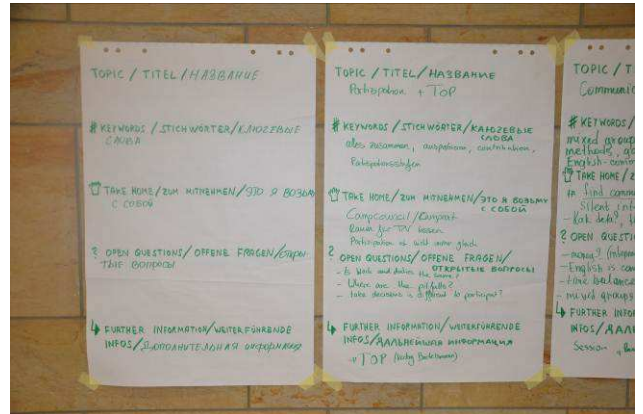 TOPIC / TITEL / НАЗВАНИЕ
# KEYWORDS / STICHWÖRTER / КЛЮЧЕВЫЕ
СЛОВА
TAKE HOME / ZUM MITNEHMEN / ЭТО Я ВОЗЬМУ
С СОБОЙ
? OPEN QUESTIONS / OFFENE FRAGEN /
ВОПРОСЫ
FURTHER INFORMATION / WEITERFÜHRENDE
INFOS / ДОПОЛНИТЕЛЬНАЯ ИНФОРМАЦИЯ
TOPIC / TITEL / НАЗВАНИЕ
Partizipation + TOP
# KEYWORDS / STICHWÖRTER / КЛЮЧЕВЫЕ
СЛОВА
alles zusammen,
Partizipationsstufen
TAKE HOME / ZUM MITNEHMEN / ЭТО Я ВОЗЬМУ
С СОБОЙ
Campcouncil /
Raum für TN lassen
Partizipation ist nicht immer gleich
? OPEN QUESTIONS / OFFENE FRAGEN /
ОТКРЫТЫЕ ВОПРОСЫ
- Where are the pitfalls?
- take decisions is different to participate?
FURTHER INFORMATION / WEITERFÜHRENDE
INFOS / ДАЛЬНЕЙШАЯ ИНФОРМАЦИЯ
TOP
TOPIC / T
# KEYWORDS /
mixed group
methods,
English
TAKE HOME / Z
find comm
Silent
? OPEN QUESTI
- money?
- English is
- balance
- mixed groups
FURTHER INFOR
INFOS / ДАЛЬ
Session